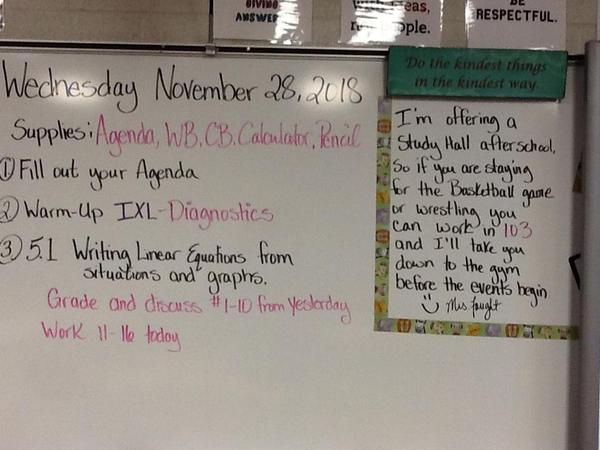 GIVING
ANSWER
with ideas,
not people.
BE
RESPECTFUL.
Do the kindest things
in the kindest way.
Wednesday November 28, 2018
Supplies: Agenda, WB, CB, Calculator, Pencil
① Fill out your Agenda
② Warm-Up IXL-Diagnostics
③ 5.1 Writing Linear Equations from
situations and graphs.
Grade and discuss #1-10 from yesterday
Work 11-16 today
I'm offering a
Study Hall afterschool,
So if you are staying
for the Basketball game
or wrestling you
can work in 103
and I'll take you
down to the gym
before the events begin
Mrs. Faught